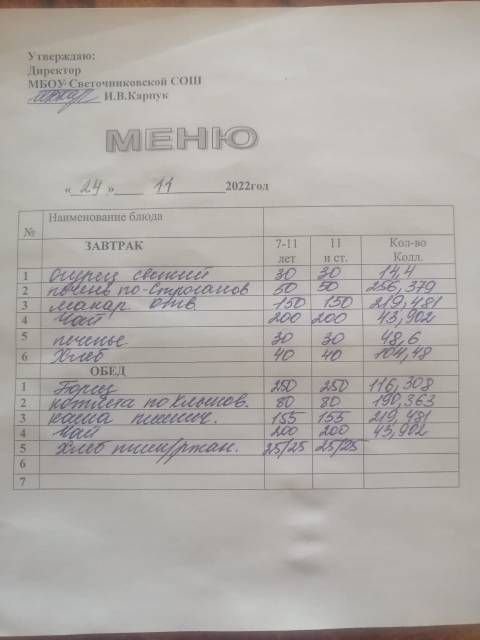 Утверждаю:
Директор
МБОУ Светочниковской СОШ
И.В.Карпук
МЕНЮ
« 24 » 11 2022год
№ Наименование блюда
ЗАВТРАК 7-11 лет 11 и ст. Кол-во Колл.
1 Огурец свежий 30 30 14,4
2 печень по-строганов 50 50 256,379
3 макар. отв. 150 150 219,481
4 Чай 200 200 43,902
5 печенье 30 30 48,6
6 Хлеб 40 40 104,48
ОБЕД
1 Борщ 250 250 116,308
2 котлета по Хлынов. 80 80 190,363
3 каша пшенич. 155 155 219,481
4 Чай 200 200 43,902
5 Хлеб пшен/ржан. 25/25 25/25
6
7